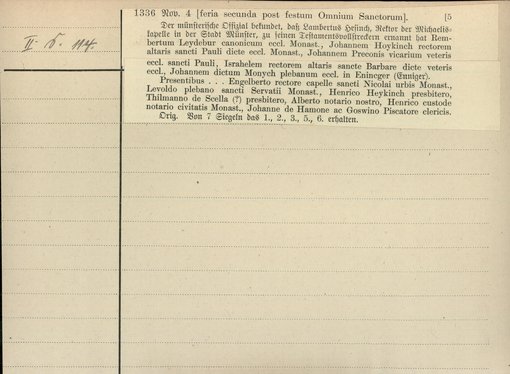 1336 Nov. 4 [feria secunda post festum Omnium Sanctorum]. [5
Der münsterische Offizial bekundet, daß Lambertus Hesinch, Rektor der Michaelis-
kapelle in der Stadt Münster, zu seinen Testamentsvollstreckern ernannt hat Rem-
bertum Leydebur canonicum eccl. Monast., Johannem Hoykinch rectorem
altaris sancti Pauli dicte eccl. Monast., Johannem Preconis vicarium veteris
eccl. sancti Pauli, Israhelem rectorem altaris sancte Barbare dicte veteris
eccl., Johannem dictum Monych plebanum eccl. in Enincger (Enniger).
Presentibus . . . Engelberto rectore capelle sancti Nicolai urbis Monast.,
Levoldo plebano sancti Servatii Monast., Henrico Heykinch presbitero,
Thilmanno de Scella (?) presbitero, Alberto notario nostro, Henrico custode
notario civitatis Monast., Johanne de Hamone ac Goswino Piscatore clericis.
Orig. Von 7 Siegeln das 1., 2., 3., 5., 6. erhalten.